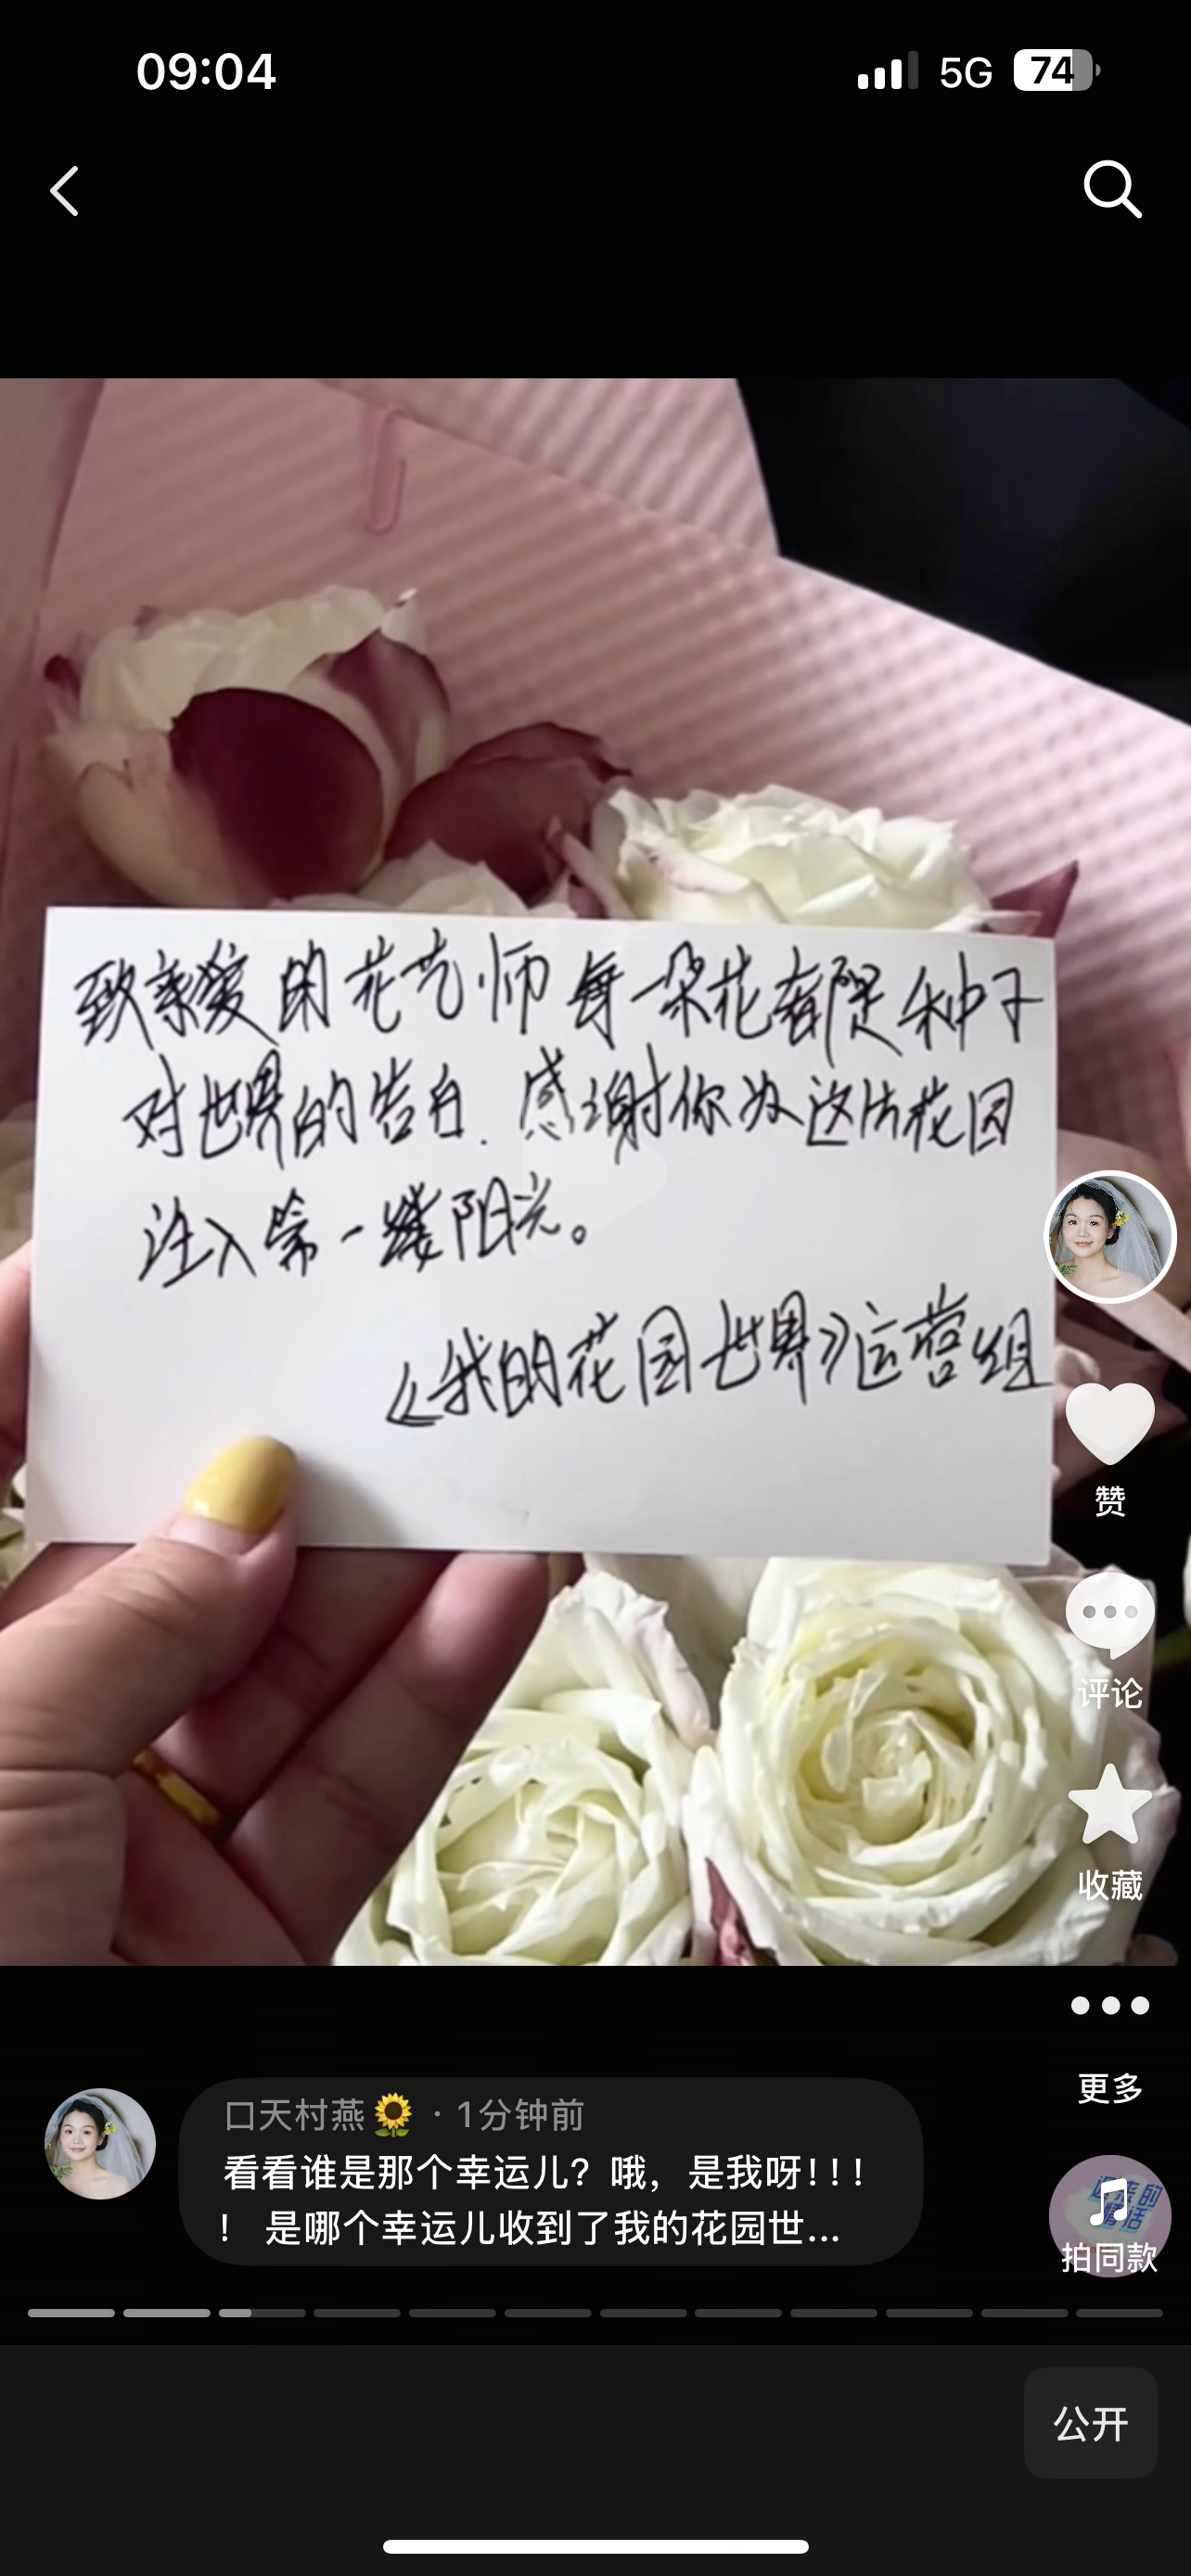 09:04
5G
74
致亲爱的花艺师 每一朵花都是种子
对世界的告白. 感谢你为这片花园
注入第一缕阳光。
《我的花园世界》运营组
赞
评论
收藏
更多
口天村燕🌻 · 1分钟前
看看谁是那个幸运儿？哦，是我呀！！！
！ 是哪个幸运儿收到了我的花园世...
的
情话
拍同款
公开